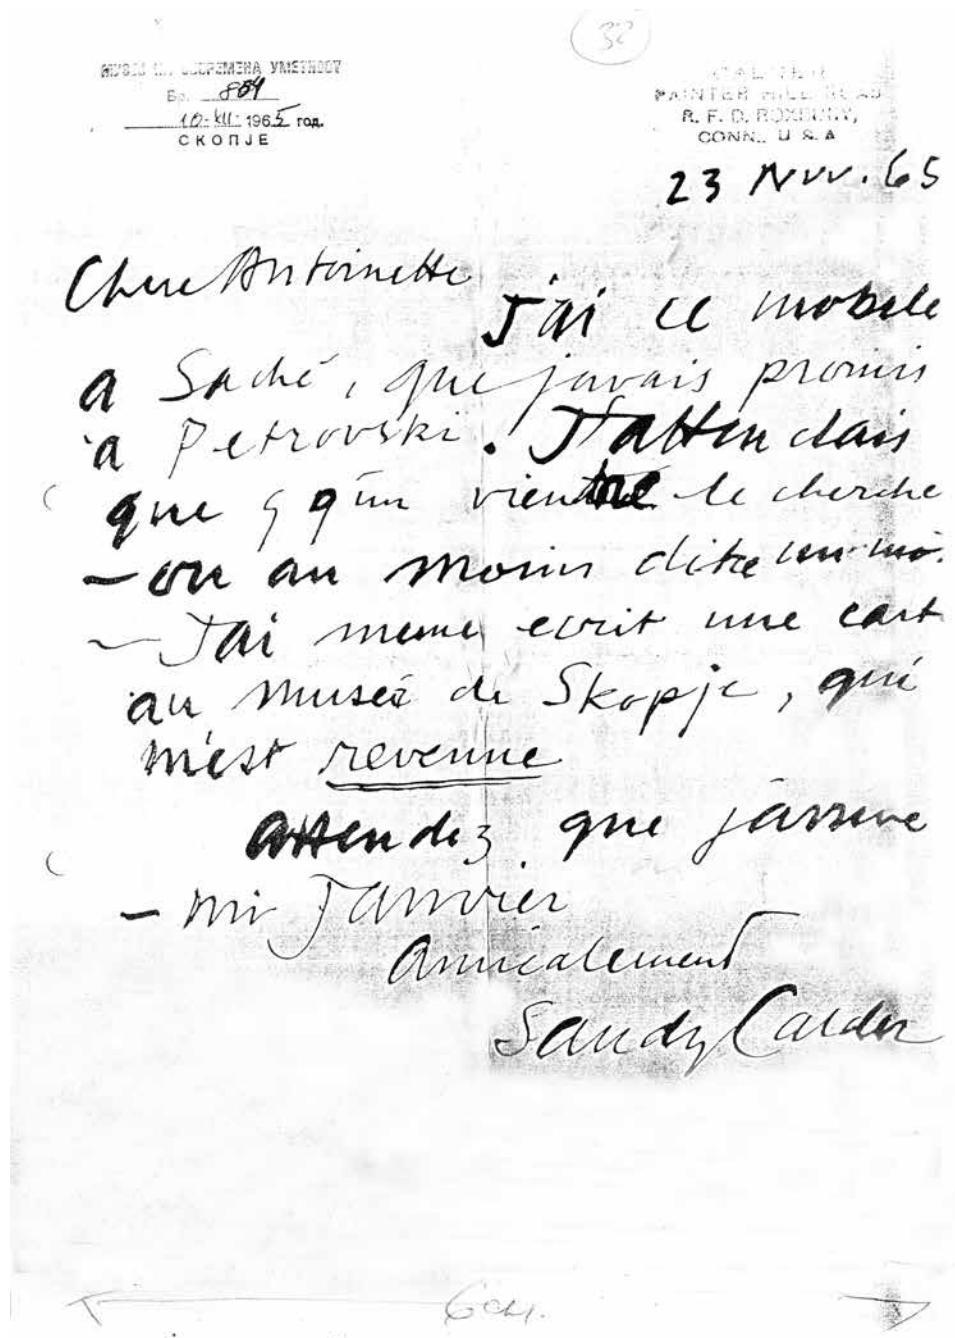 32
МУЗЕЈ НА СОВРЕМЕНА УМЕТНОСТ
Бр. 884
10-XII- 1965 год.
СКОПЈЕ
CALDER
PAINTER HILL ROAD
R. F. D. ROXBURY,
CONN., U S A
23 Nov. 65
Chere Antoinette
J'ai ce mobile
a Saché, que j'avais promis
à Petrovski. J'attendais
que q q'un le cherche
— ou au moins dire un mo.
— J'ai meme ecrit une cart
au Museé de Skopje, qui
m'est revenue
Attendez que j'arrive
— mi Janvier
Amicalement
Sandy Calder
6 cm.